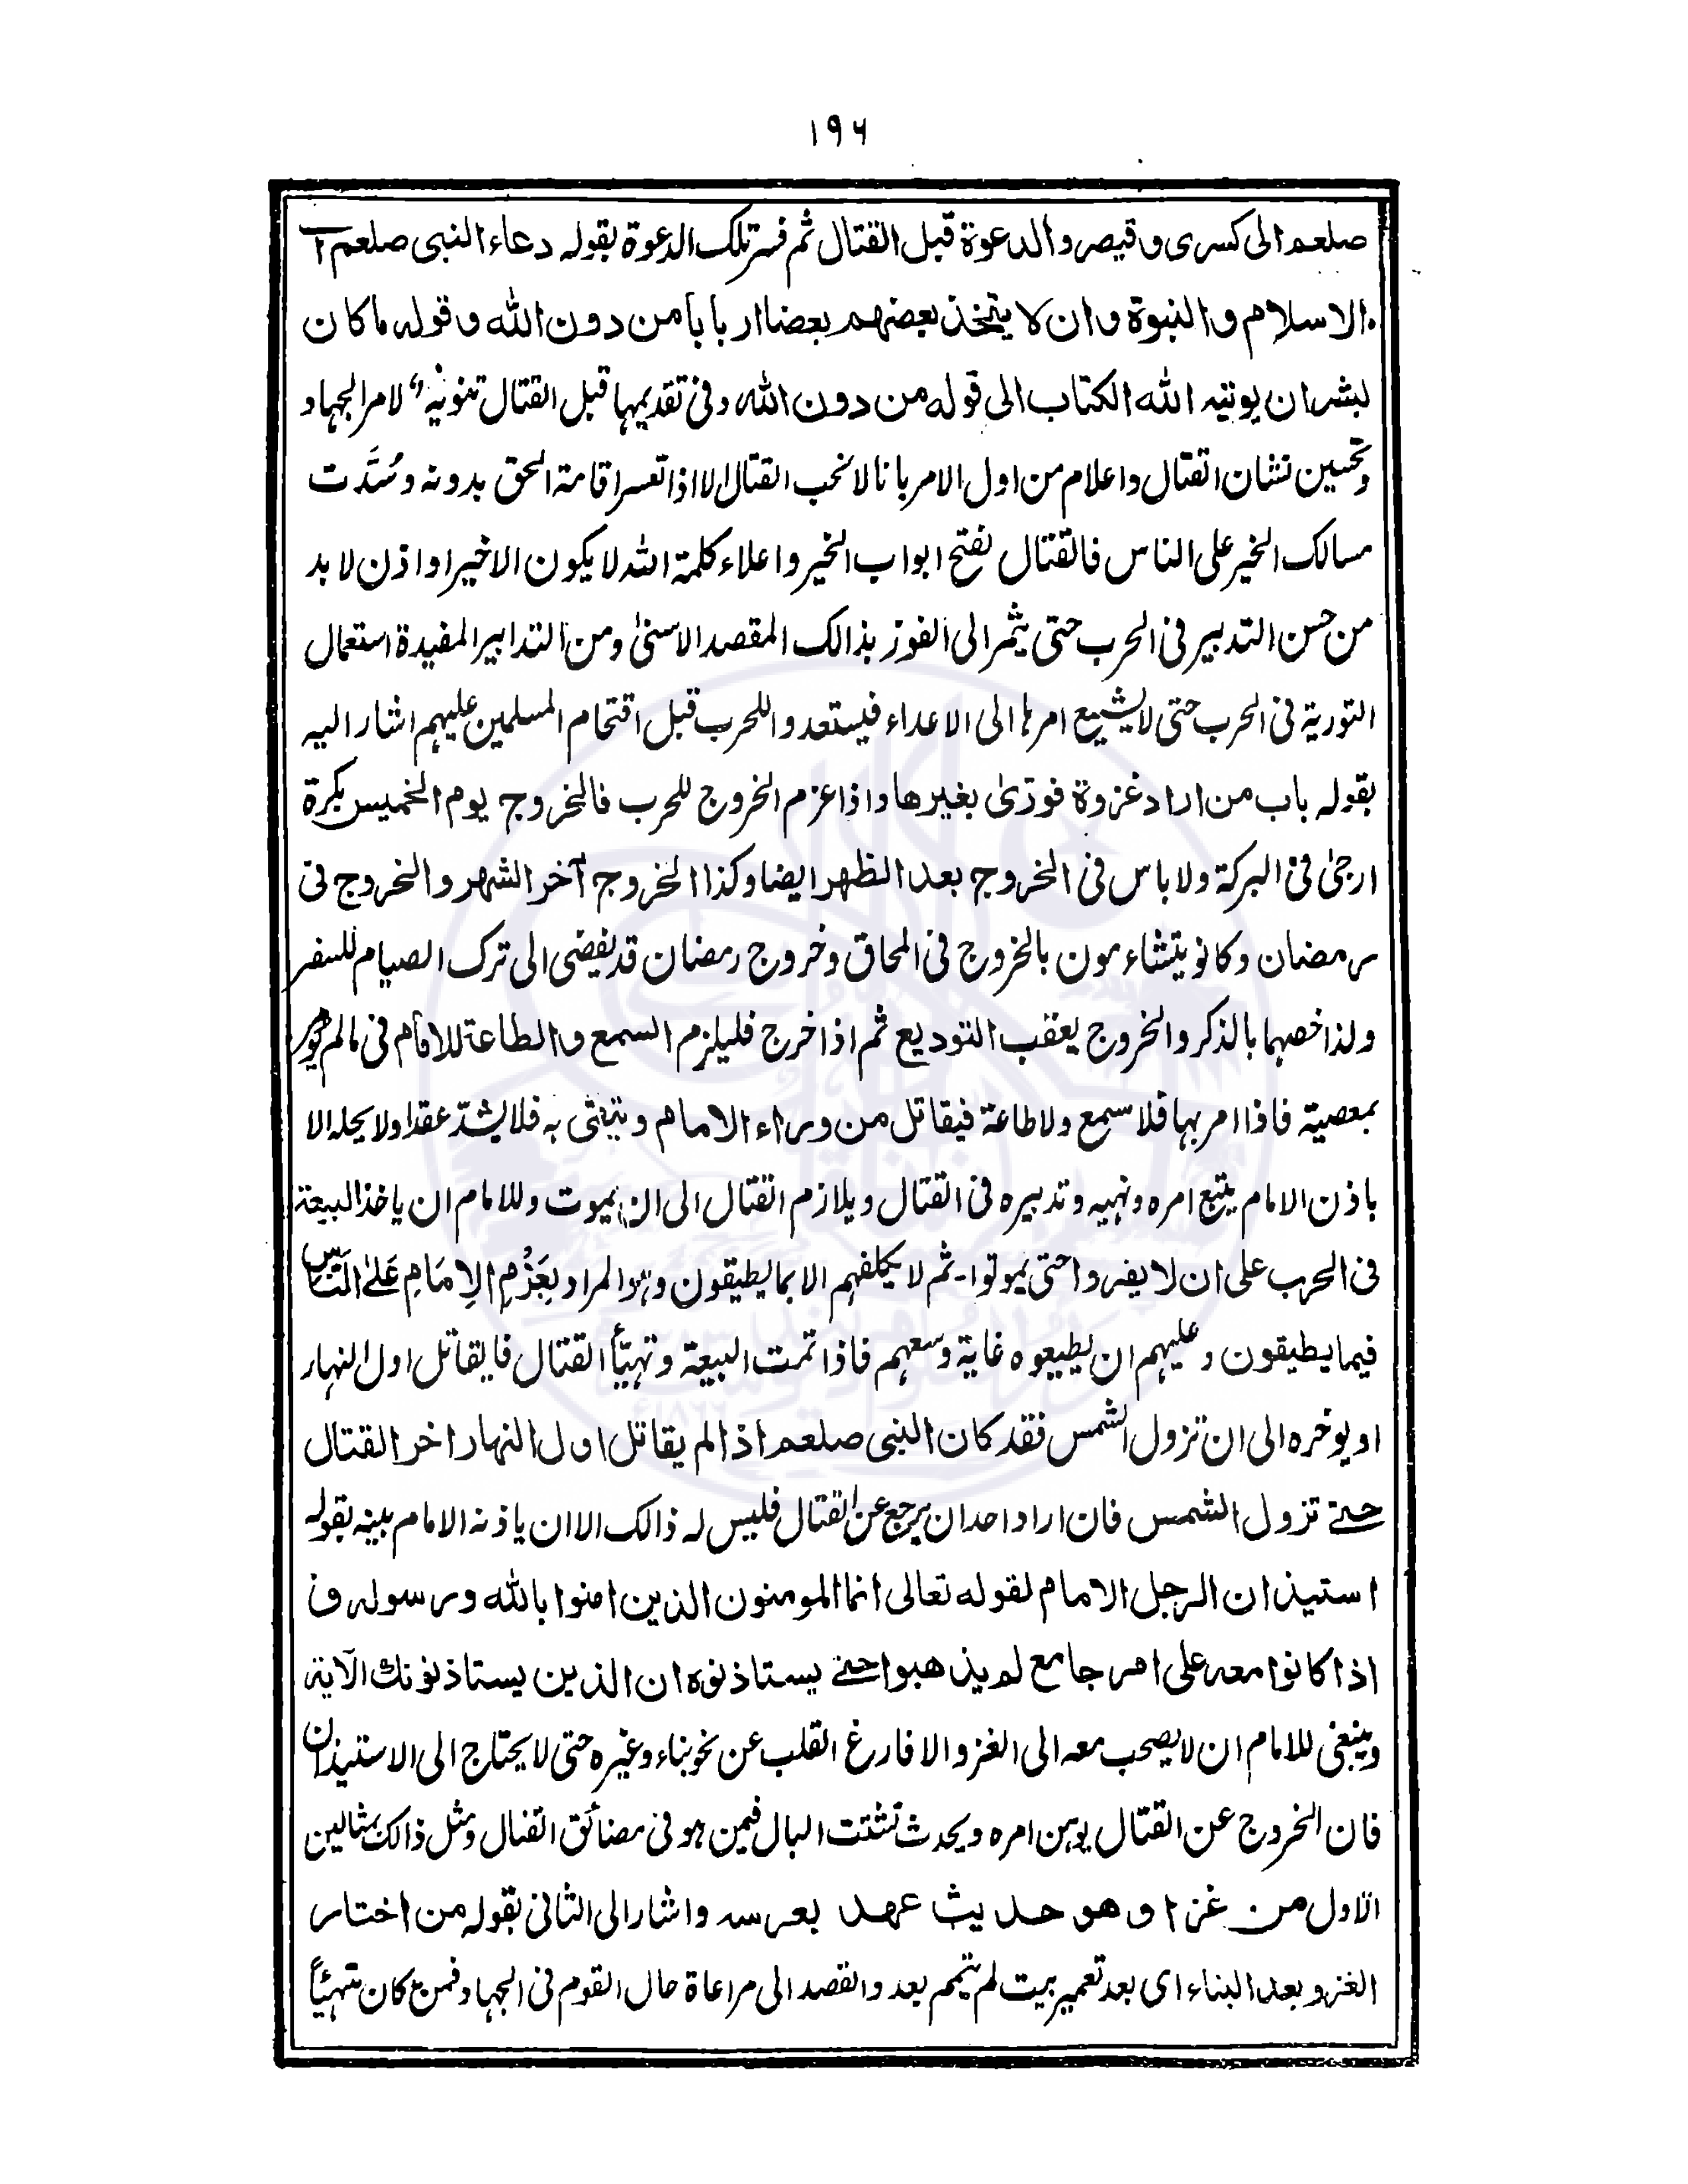 ۱۹۶
صلعم الى كسرى و قيصر و الدعوة قبل القتال ثم فسر تلك الدعوة بقوله دعاء النبى صلعم
الاسلام و النبوة و ان لا يتخذ بعضهم بعضا اربابا من دون الله و قوله ما كان
لبشر ان يوتيه الله الكتاب الى قوله من دون الله و فى تقديمها قبل القتال تنويه لامر الجهاد
و تحسين نشان القتال و اعلام من اول الامر بانا لا نحب القتال الا اذا تعسر اقامة الحق بدونه و سُدَّت
مسالك الخير على الناس فالقتال لفتح ابواب الخير و اعلاء كلمة الله لا يكون الا خيرا و اذن لا بد
من حسن التدبير فى الحرب حتى يثمر الى الفوز بذالك المقصد الاسنىٰ و من التدابير المفيدة استعمال
التورية فى الحرب حتى لا يشيع امرها الى الاعداء فيستعدوا للحرب قبل اقتحام المسلمين عليهم اشار اليه
بقوله باب من اراد غزوة فورّىٰ بغيرها و اذا عزم الخروج للحرب فالخروج يوم الخميس بكرة
ارجىٰ فى البركة ولا باس فى الخروج بعد الظهر ايضا و كذا الخروج آخر الشهر و الخروج فى
رمضان و كانو يتشاءمون بالخروج فى المحاق و خروج رمضان قد يفضى الى ترك الصيام للسفر
ولذا خصهما بالذكر و الخروج يعقب التوديع ثم اذا خرج فليلزم السمع و الطاعة للامام فى مالم يومر
بمعصية فاذا امر بها فلا سمع ولا طاعة فيقاتل من وراء الامام و يتقى به فلا يشدّ عقدا ولا يحله الا
باذن الامام يتبع امره و نهيه و تدبيره فى القتال و يلازم القتال الى ان يموت و للامام ان ياخذ البيعة
فى الحرب على ان لا يفروا حتى يموتوا - ثم لا يكلفهم الا بما يطيقون و هو المراد بِعَزْمِ الاِمَامِ عَلىٰ النَّاسِ
فيما يطيقون و عليهم ان يطيعوه غاية وسعهم فاذا تمت البيعة و تهيّأ القتال فايقاتل اول النهار
او يوخره الى ان تزول الشمس فقد كان النبى صلعم اذا لم يقاتل اول النهار اخر القتال
حتے تزول الشمس فان اراد احد ان يرجع عن القتال فليس له ذالك الا ان ياذنه الامام بينه بقوله
استيذان الرجل الامام لقوله تعالى انما المومنون الذين امنوا بالله و رسوله و
اذا كانوا معه على امر جامع لم يذهبوا حتے يستاذنوه ان الذين يستاذنونك الآية
وينبغى للامام ان لا يصحب معه الى الغزو الا فارغ القلب عن نحو بناء و غيره حتى لا يحتاج الى الاستيذان
فان الخروج عن القتال يوهن امره و يحدث تشتت البال فيمن هو فى مضائق القتال و مثل ذالك بمثالين
الاول من غزا و هو حديث عهد بعرسه و اشار الى الثانى بقوله من اختار
الغزو بعد البناء اى بعد تعمير بيت لم يتمم بعد و القصد الى مراعاة حال القوم فى الجهاد فمن كان متهيئاً